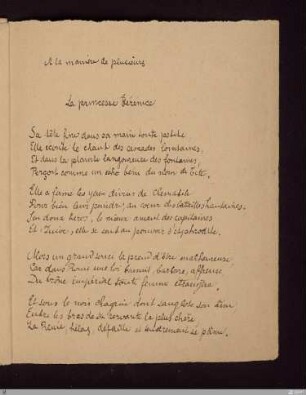 A la manière de plusieurs
La princesse Bérénice
Sa tête fine dans sa main toute petite
Elle écoute le chant des cascades lointaines,
Et dans la plainte langoureuse des fontaines,
Perçoit comme un écho béni du nom de Tite.
Elle a fermé ses yeux divins de clématite
Pour bien leur peindre, au cœur des batailles hautaines
Son doux héros, le mieux aimant des capitaines
Et, Juive, elle se sent au pouvoir d'Aphrodite.
Alors un grand souci la prend d'être amoureuse
Car dans Rome une loi bannit, barbare, affreuse,
Du trône impérial toute femme étrangère.
Et sous le noir chagrin dont sanglote son âme
Entre les bras de sa servante la plus chère
La Reine, hélas, défaille et tendrement se pâme.